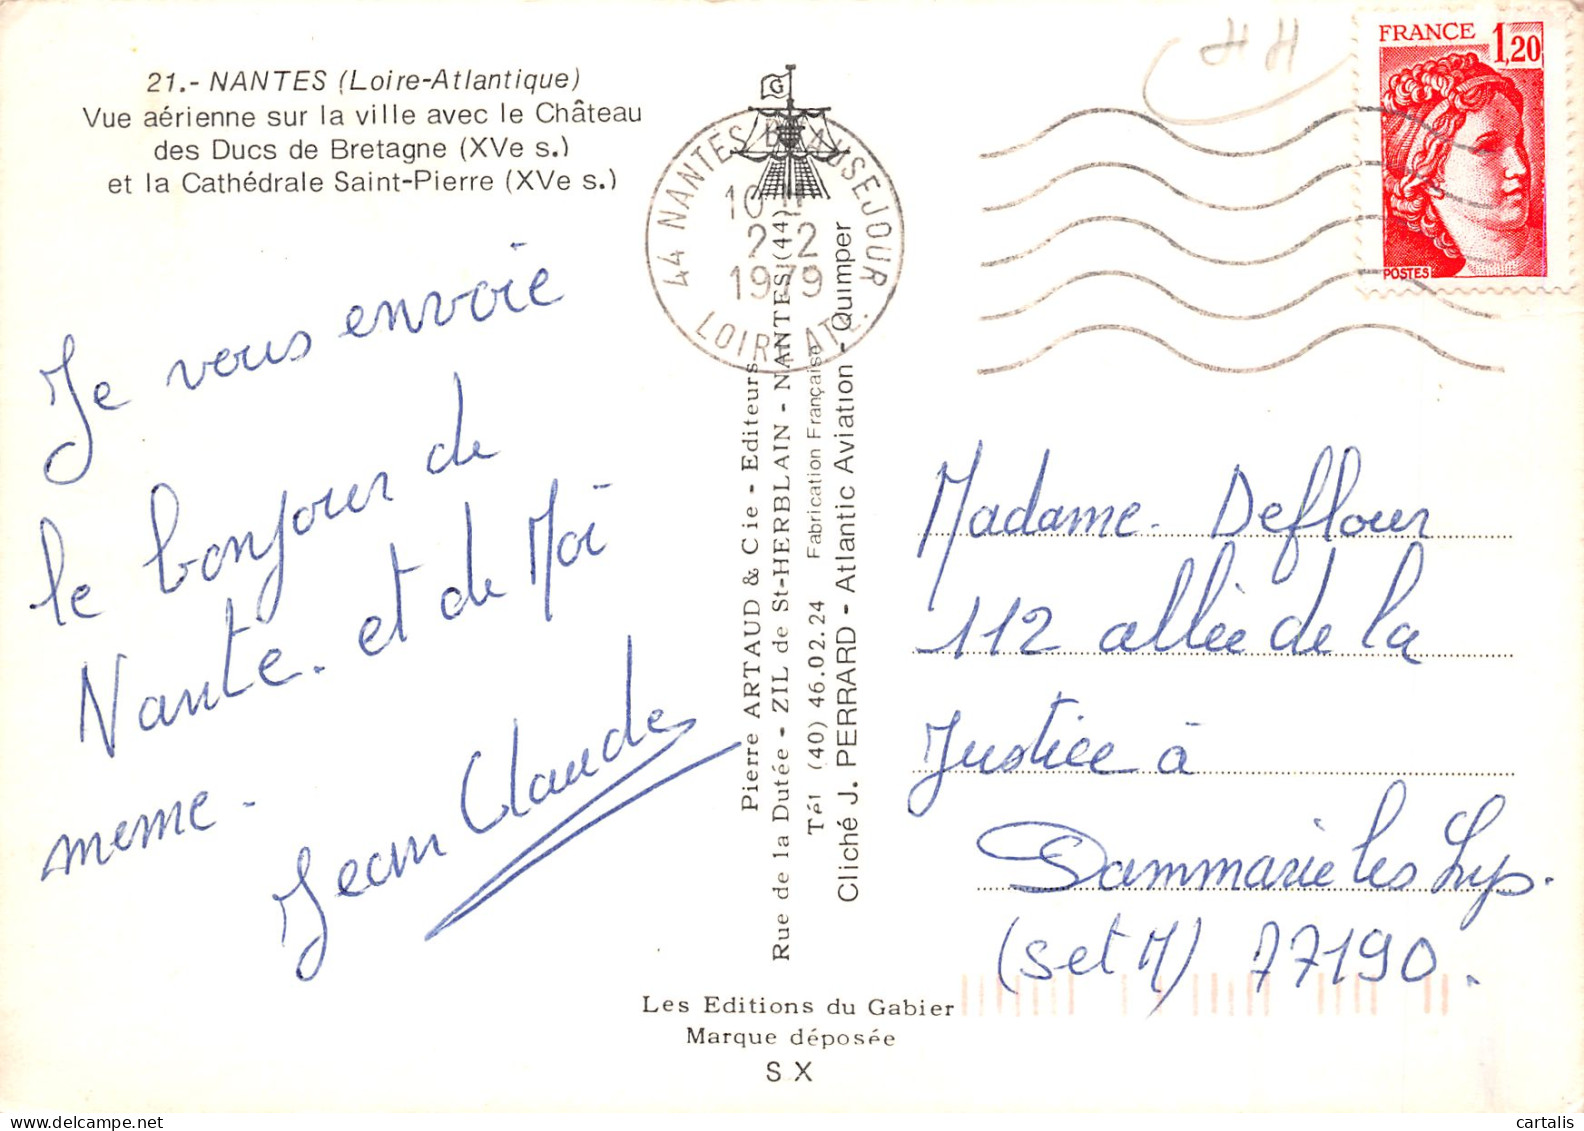 21.- NANTES (Loire-Atlantique)
Vue aérienne sur la ville avec le Château
des Ducs de Bretagne (XVe s.)
et la Cathédrale Saint-Pierre (XVe s.)
Je vous envoie
le bonjour de
Nante. et de Moi
meme.
Jean Claude
G
44 NANTES BEAUSEJOUR
10 H
2-2
1979
LOIRE ATL.
Pierre ARTAUD & Cie - Editeurs
Rue de la Dutée - ZIL de St-HERBLAIN - NANTES (44)
Tél (40) 46.02.24 Fabrication Française
Cliché J. PERRARD - Atlantic Aviation - Quimper
Les Editions du Gabier
Marque déposée
SX
FRANCE 1,20
POSTES
Madame. Deflour
112 allée de la
Justice à
Dammarie les Lys.
(set M) 77190.
cartalis.com